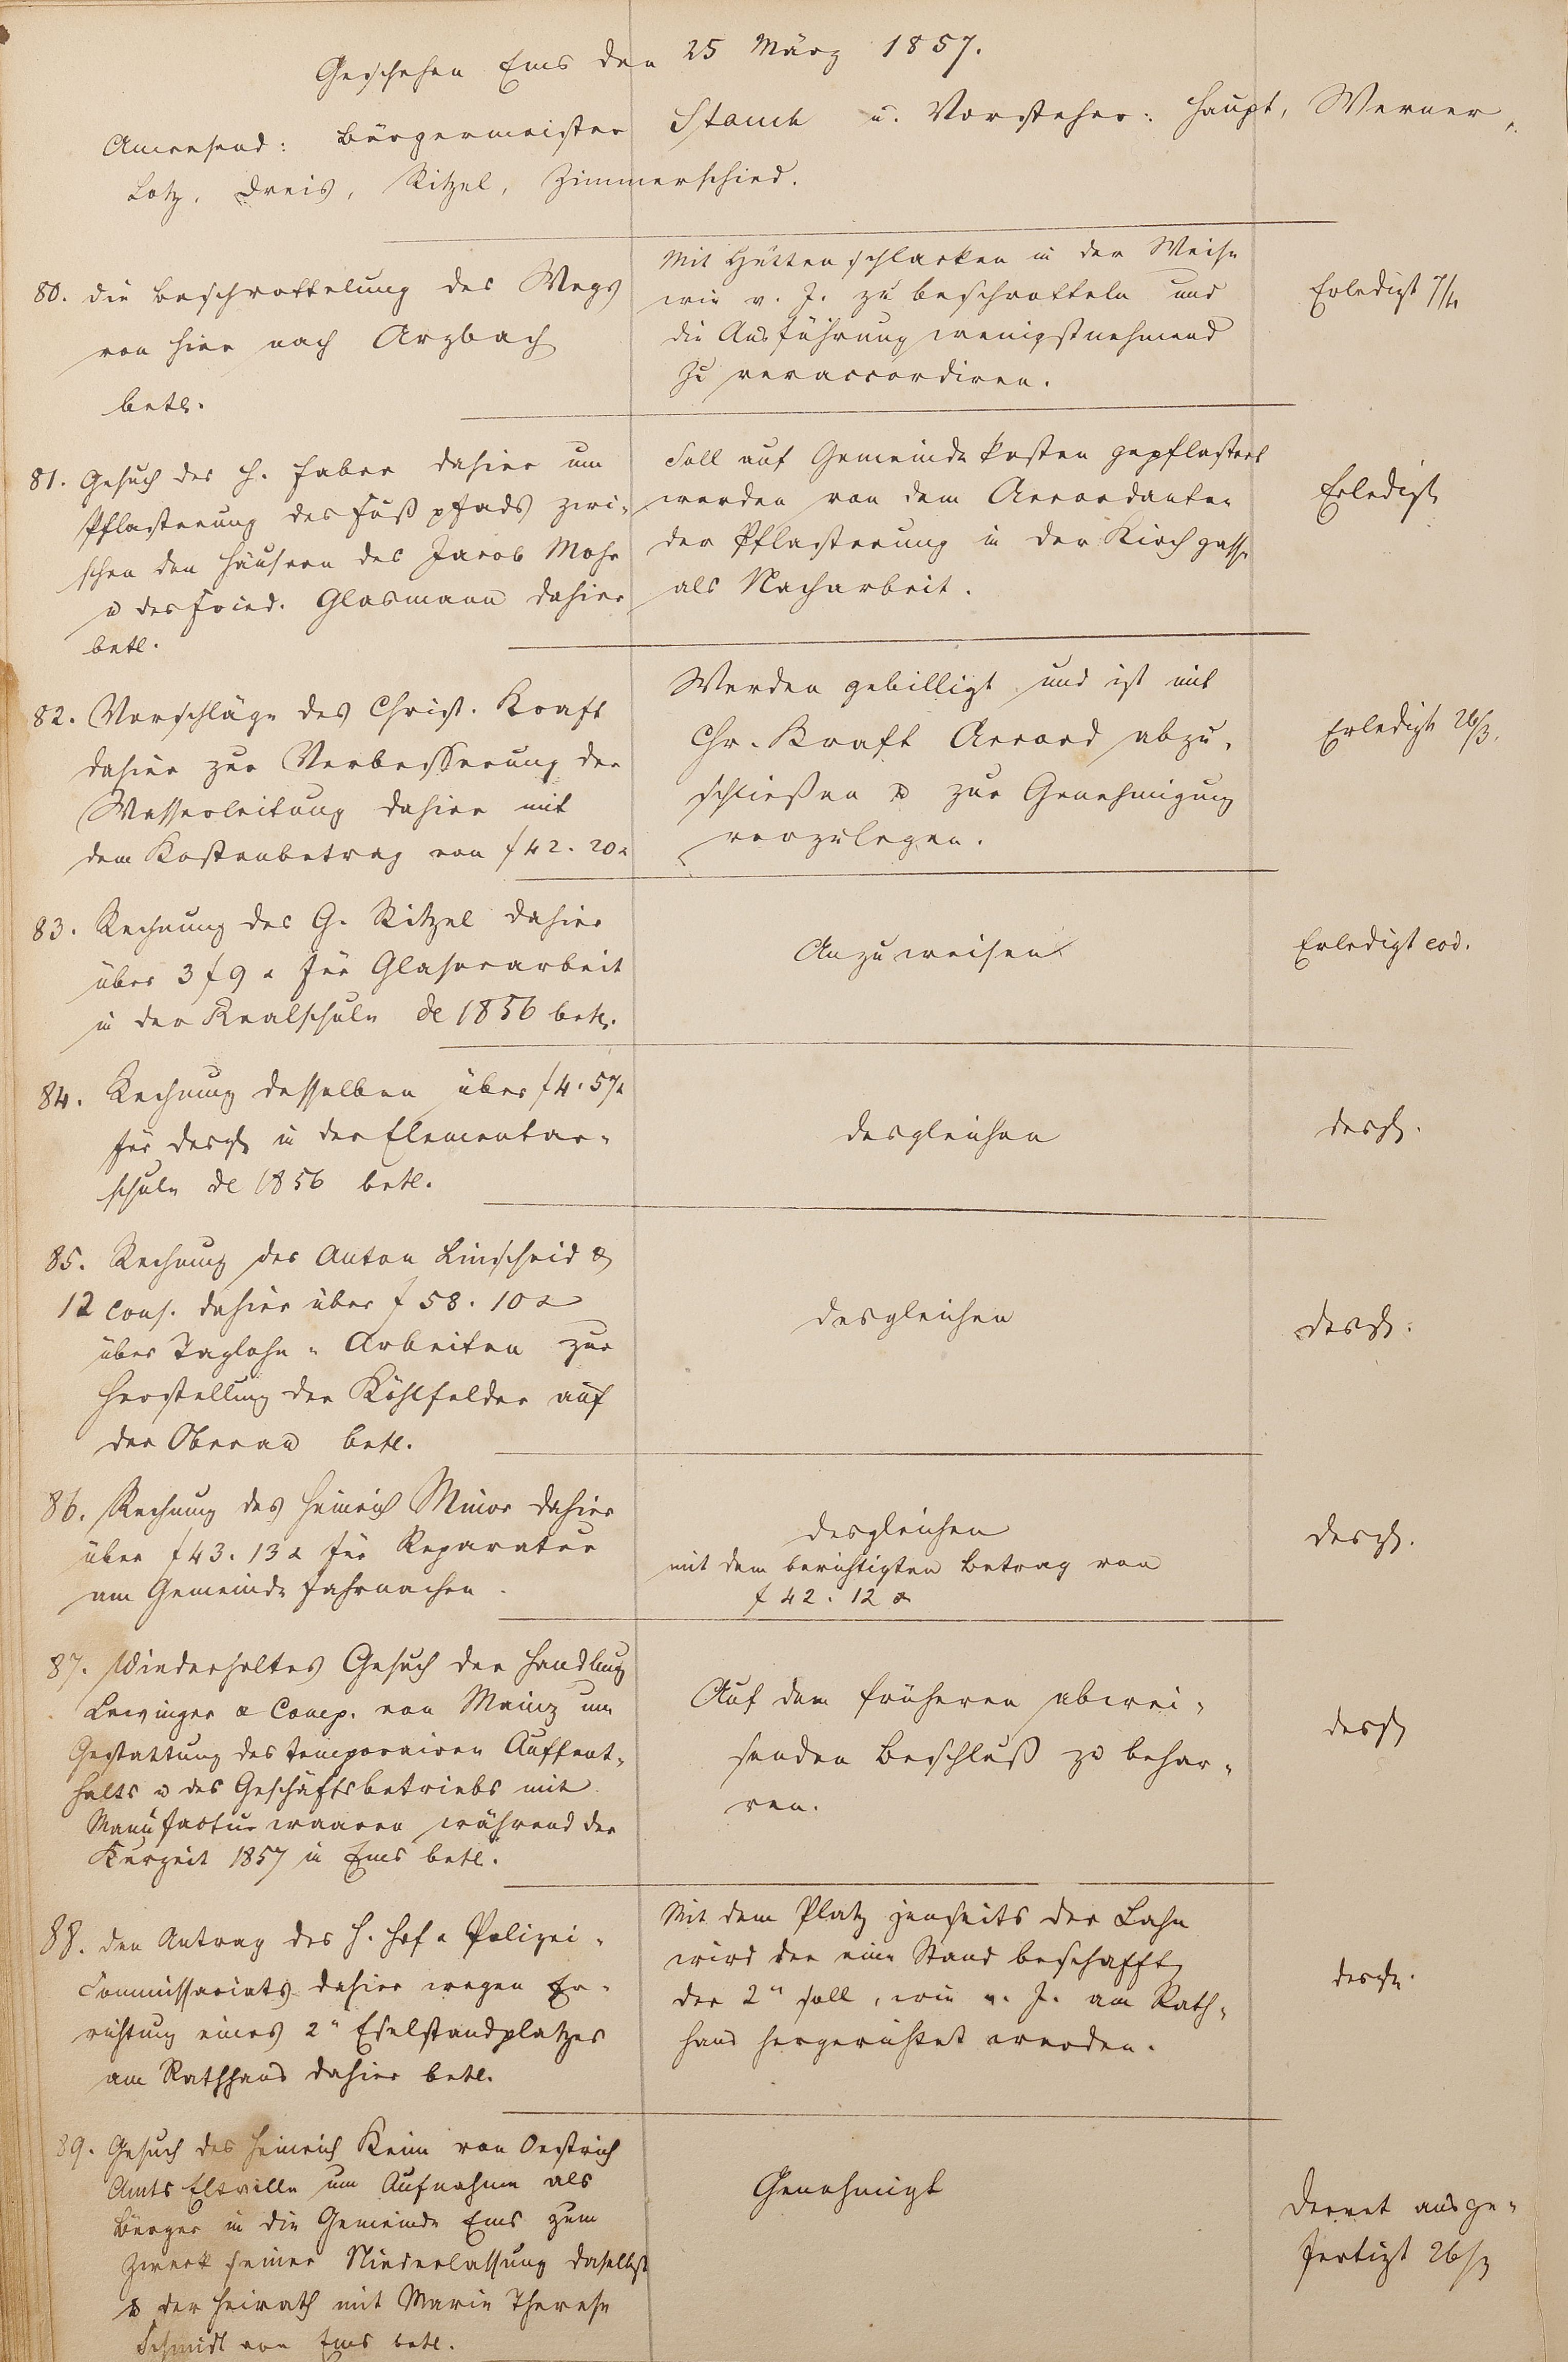 Geschehen Ems den 25 März 1857.
Anwesend: Bürgermeister Stauch u. Vorsteher: Haupt, Werner,
Lotz, Dreis, Ritzel, Zimmerschied.
80. Die Beschrottelung des Wegs
von hier nach Arzbach
betr.
Mit Hüttenschlacken in der Weise
wie v. J. zu beschrotteln und
die Ausführung wenigstnehmend
zu veraccordiren.
Erledigt 7/4
81. Gesuch des H. Faber dahier um
Pflasterung des Fußpfads zwi-
schen den Häusern des Jacob Mohr
u des Fried. Glasmann dahier
betr.
Soll auf Gemeindekosten gepflastert
werden von dem Accordanten
der Pflasterung in der Kirchgasse
als Nacharbeit.
Erledigt
82. Vorschläge des Christ. Kraft
dahier zur Verbesserung der
Wasserleitung dahier mit
dem Kostenbetrag von f 42. 20x
Werden gebilligt und ist mit
Chr. Kraft Accord abzu-
schließen u zur Genehmigung
vorzulegen.
Erledigt 26/3.
83. Rechnung des G. Ritzel dahier
über 3 f 9 x für Glaserarbeit
in der Realschule de 1856 betr.
Anzuweisen
Erledigt eod.
84. Rechnung desselben über f 4. 57x
für desgl in der Elementar-
schule de 1856 betr.
desgleichen
desgl.
85. Rechnung des Anton Linscheid &
12 Cons. dahier über f 58. 10 x
über Taglohn-Arbeiten zur
Herstellung der Köhlfelder auf
der Oberau betr.
desgleichen
desgl.
86. Rechnung des Heinrich Minor dahier
über f 43. 13 x für Reparatur
am Gemeindefahrnachen.
desgleichen
mit dem berichtigten Betrag von
f 42. 12 x
desgl.
87. Wiederholtes Gesuch der Handlung
& Comp. von Mainz um
Gestattung des temporairen Auffent-
halts u des Geschäftsbetriebs mit
Manufacturwaaren während der
Kurzeit 1857 in Ems betr.
Auf dem früheren abwei-
senden Beschluß zu behar-
ren.
desgl
88. Den Antrag des H. Hof & Polizei-
Commissariats dahier wegen Er-
richtung eines 2n Eselstandplatzes
am Rathhaus dahier betr.
Mit dem Platz jenseits der Lahn
wird der eine Stand beschafft,
der 2te soll, wie v. J. am Rath-
haus hergerichtet werden.
desgl.
89. Gesuch des Heinrich Keim von Oestrich
Amts Eltville um Aufnahme als
Bürger in die Gemeinde Ems zum
Zweck seiner Niederlassung daselbst
u der Heirath mit Marie Therese
Schmidt von Ems betr.
Genehmigt
Decret ausge-
fertigt 26/3